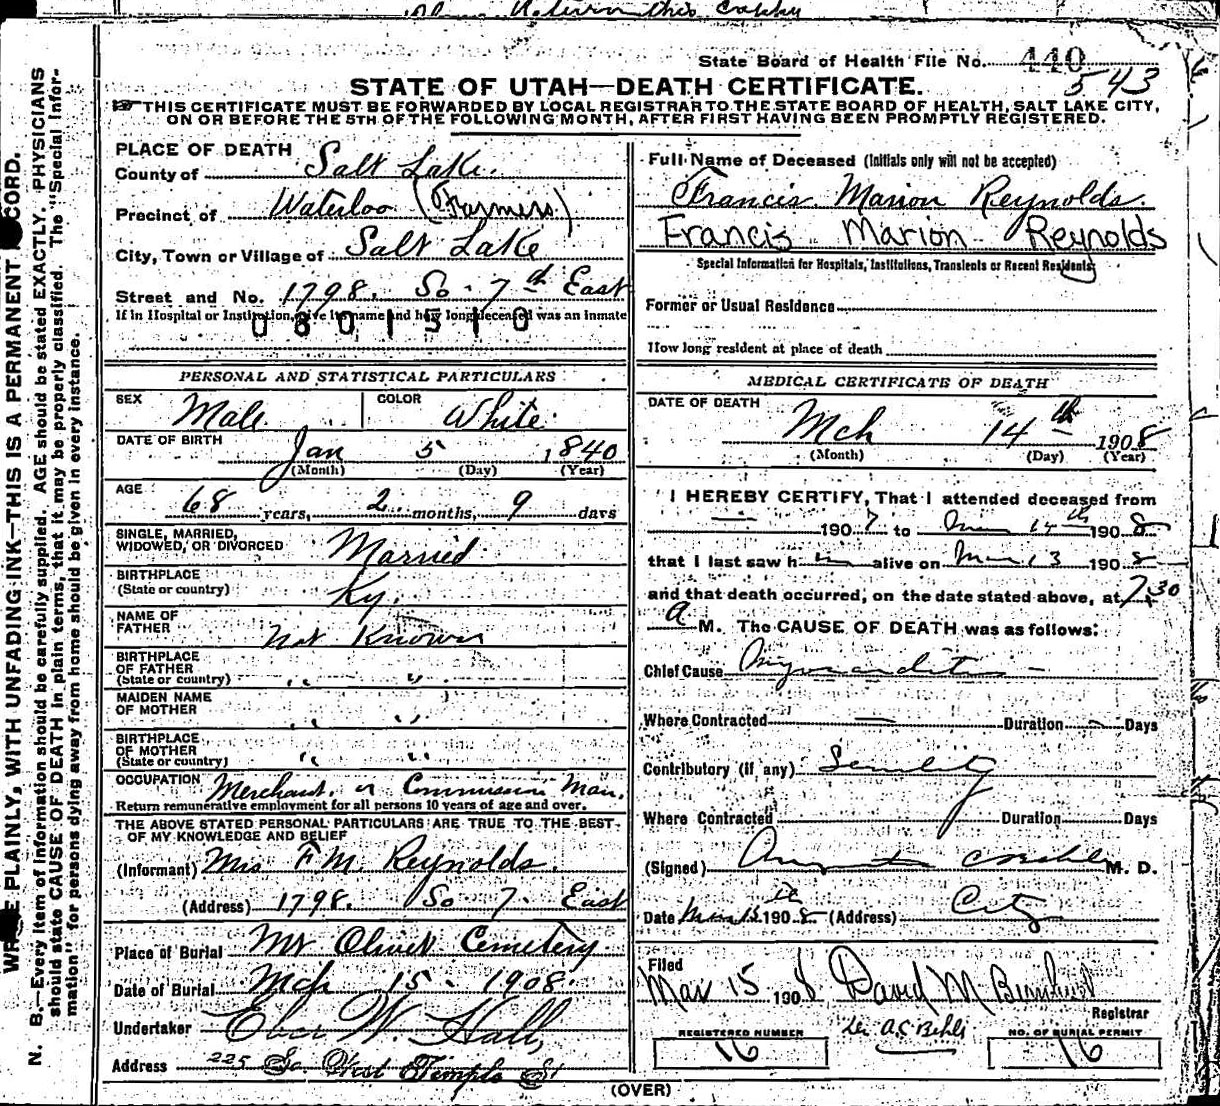 Return this Copy
State Board of Health File No. 440
543
STATE OF UTAH—DEATH CERTIFICATE.
THIS CERTIFICATE MUST BE FORWARDED BY LOCAL REGISTRAR TO THE STATE BOARD OF HEALTH, SALT LAKE CITY,
ON OR BEFORE THE 5TH OF THE FOLLOWING MONTH, AFTER FIRST HAVING BEEN PROMPTLY REGISTERED.
N. B.—Every item of information should be carefully supplied. AGE should be stated EXACTLY. PHYSICIANS
should state CAUSE OF DEATH in plain terms, that it may be properly classified. The "Special Infor-
mation" for persons dying away from home should be given in every instance.
PLAINLY, WITH UNFADING INK—THIS IS A PERMANENT
PLACE OF DEATH
County of Salt Lake.
Precinct of Waterloo (Farmers)
City, Town or Village of Salt Lake
Street and No. 1798. So. 7th East
If in Hospital or Institution, give its name and how long deceased was an inmate
0801510
PERSONAL AND STATISTICAL PARTICULARS
SEX Male COLOR White
DATE OF BIRTH Jan 5 1840
(Month) (Day) (Year)
AGE 68 years, 2 months, 9 days
SINGLE, MARRIED,
WIDOWED, OR DIVORCED Married
BIRTHPLACE
(State or country) Ky.
NAME OF
FATHER Not Known
BIRTHPLACE
OF FATHER
(State or country) " "
MAIDEN NAME
OF MOTHER " "
BIRTHPLACE
OF MOTHER
(State or country) " "
OCCUPATION Merchant or Commission Man.
Return remunerative employment for all persons 10 years of age and over.
THE ABOVE STATED PERSONAL PARTICULARS ARE TRUE TO THE BEST
OF MY KNOWLEDGE AND BELIEF
(Informant) Mrs F. M. Reynolds.
(Address) 1798. So 7. East
Place of Burial Mt Olivet Cemetery
Date of Burial Mch 15. 1908.
Undertaker Eber W. Hall,
Address 225 So West Temple St
Full Name of Deceased (Initials only will not be accepted)
Francis Marion Reynolds.
Francis Marion Reynolds
Special Information for Hospitals, Institutions, Transients or Recent Residents
Former or Usual Residence
How long resident at place of death
MEDICAL CERTIFICATE OF DEATH
DATE OF DEATH
Mch 14th 1908
(Month) (Day) (Year)
I HEREBY CERTIFY, That I attended deceased from
— 1907 to Mar 14th 1908
that I last saw him alive on Mar 13 1908
and that death occurred, on the date stated above, at 7.30
a M. The CAUSE OF DEATH was as follows:
Chief Cause Myocarditis —
Where Contracted — Duration — Days
Contributory (if any) Senility
Where Contracted Duration Days
(Signed) M. D.
Date Mar 15th 1908 (Address) City
Filed
Mar 15 1908 David M
Registrar
REGISTERED NUMBER
16
NO. OF BURIAL PERMIT
16
(OVER)